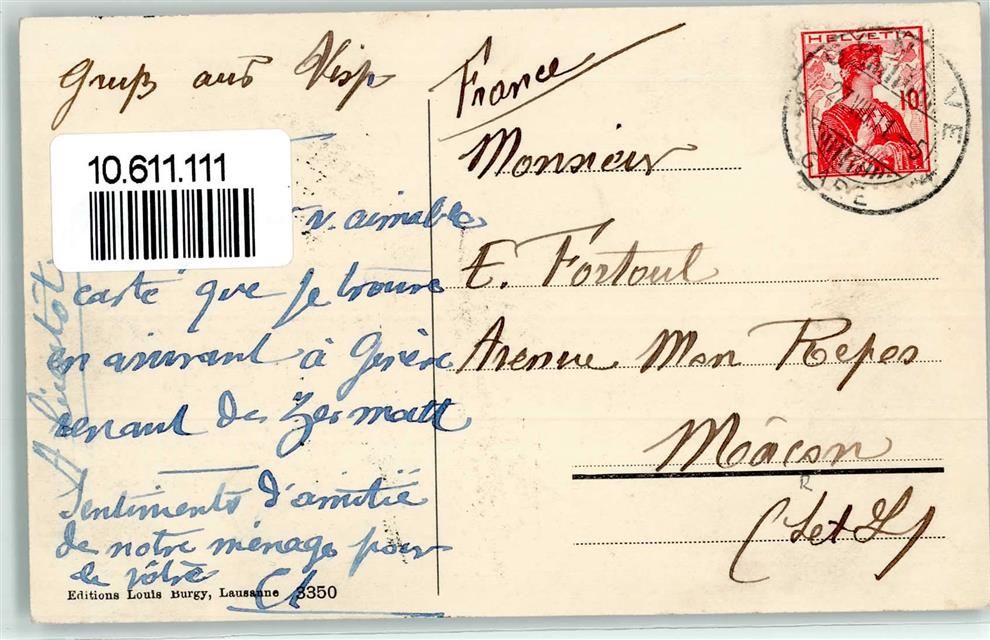 Gruß aus Visp
10.611.111
v. aimable
carte que je trouve
en arrivant à Genève
venant de Zermatt
Sentiments d'amitié
de notre ménage pour
le vôtre
A bientôt
Editions Louis Burgy, Lausanne 3350
France
HELVETIA
10
GARE
Monsieur
E. Fortoul
Avenue Mon Repos
Mâcon
(S et L)